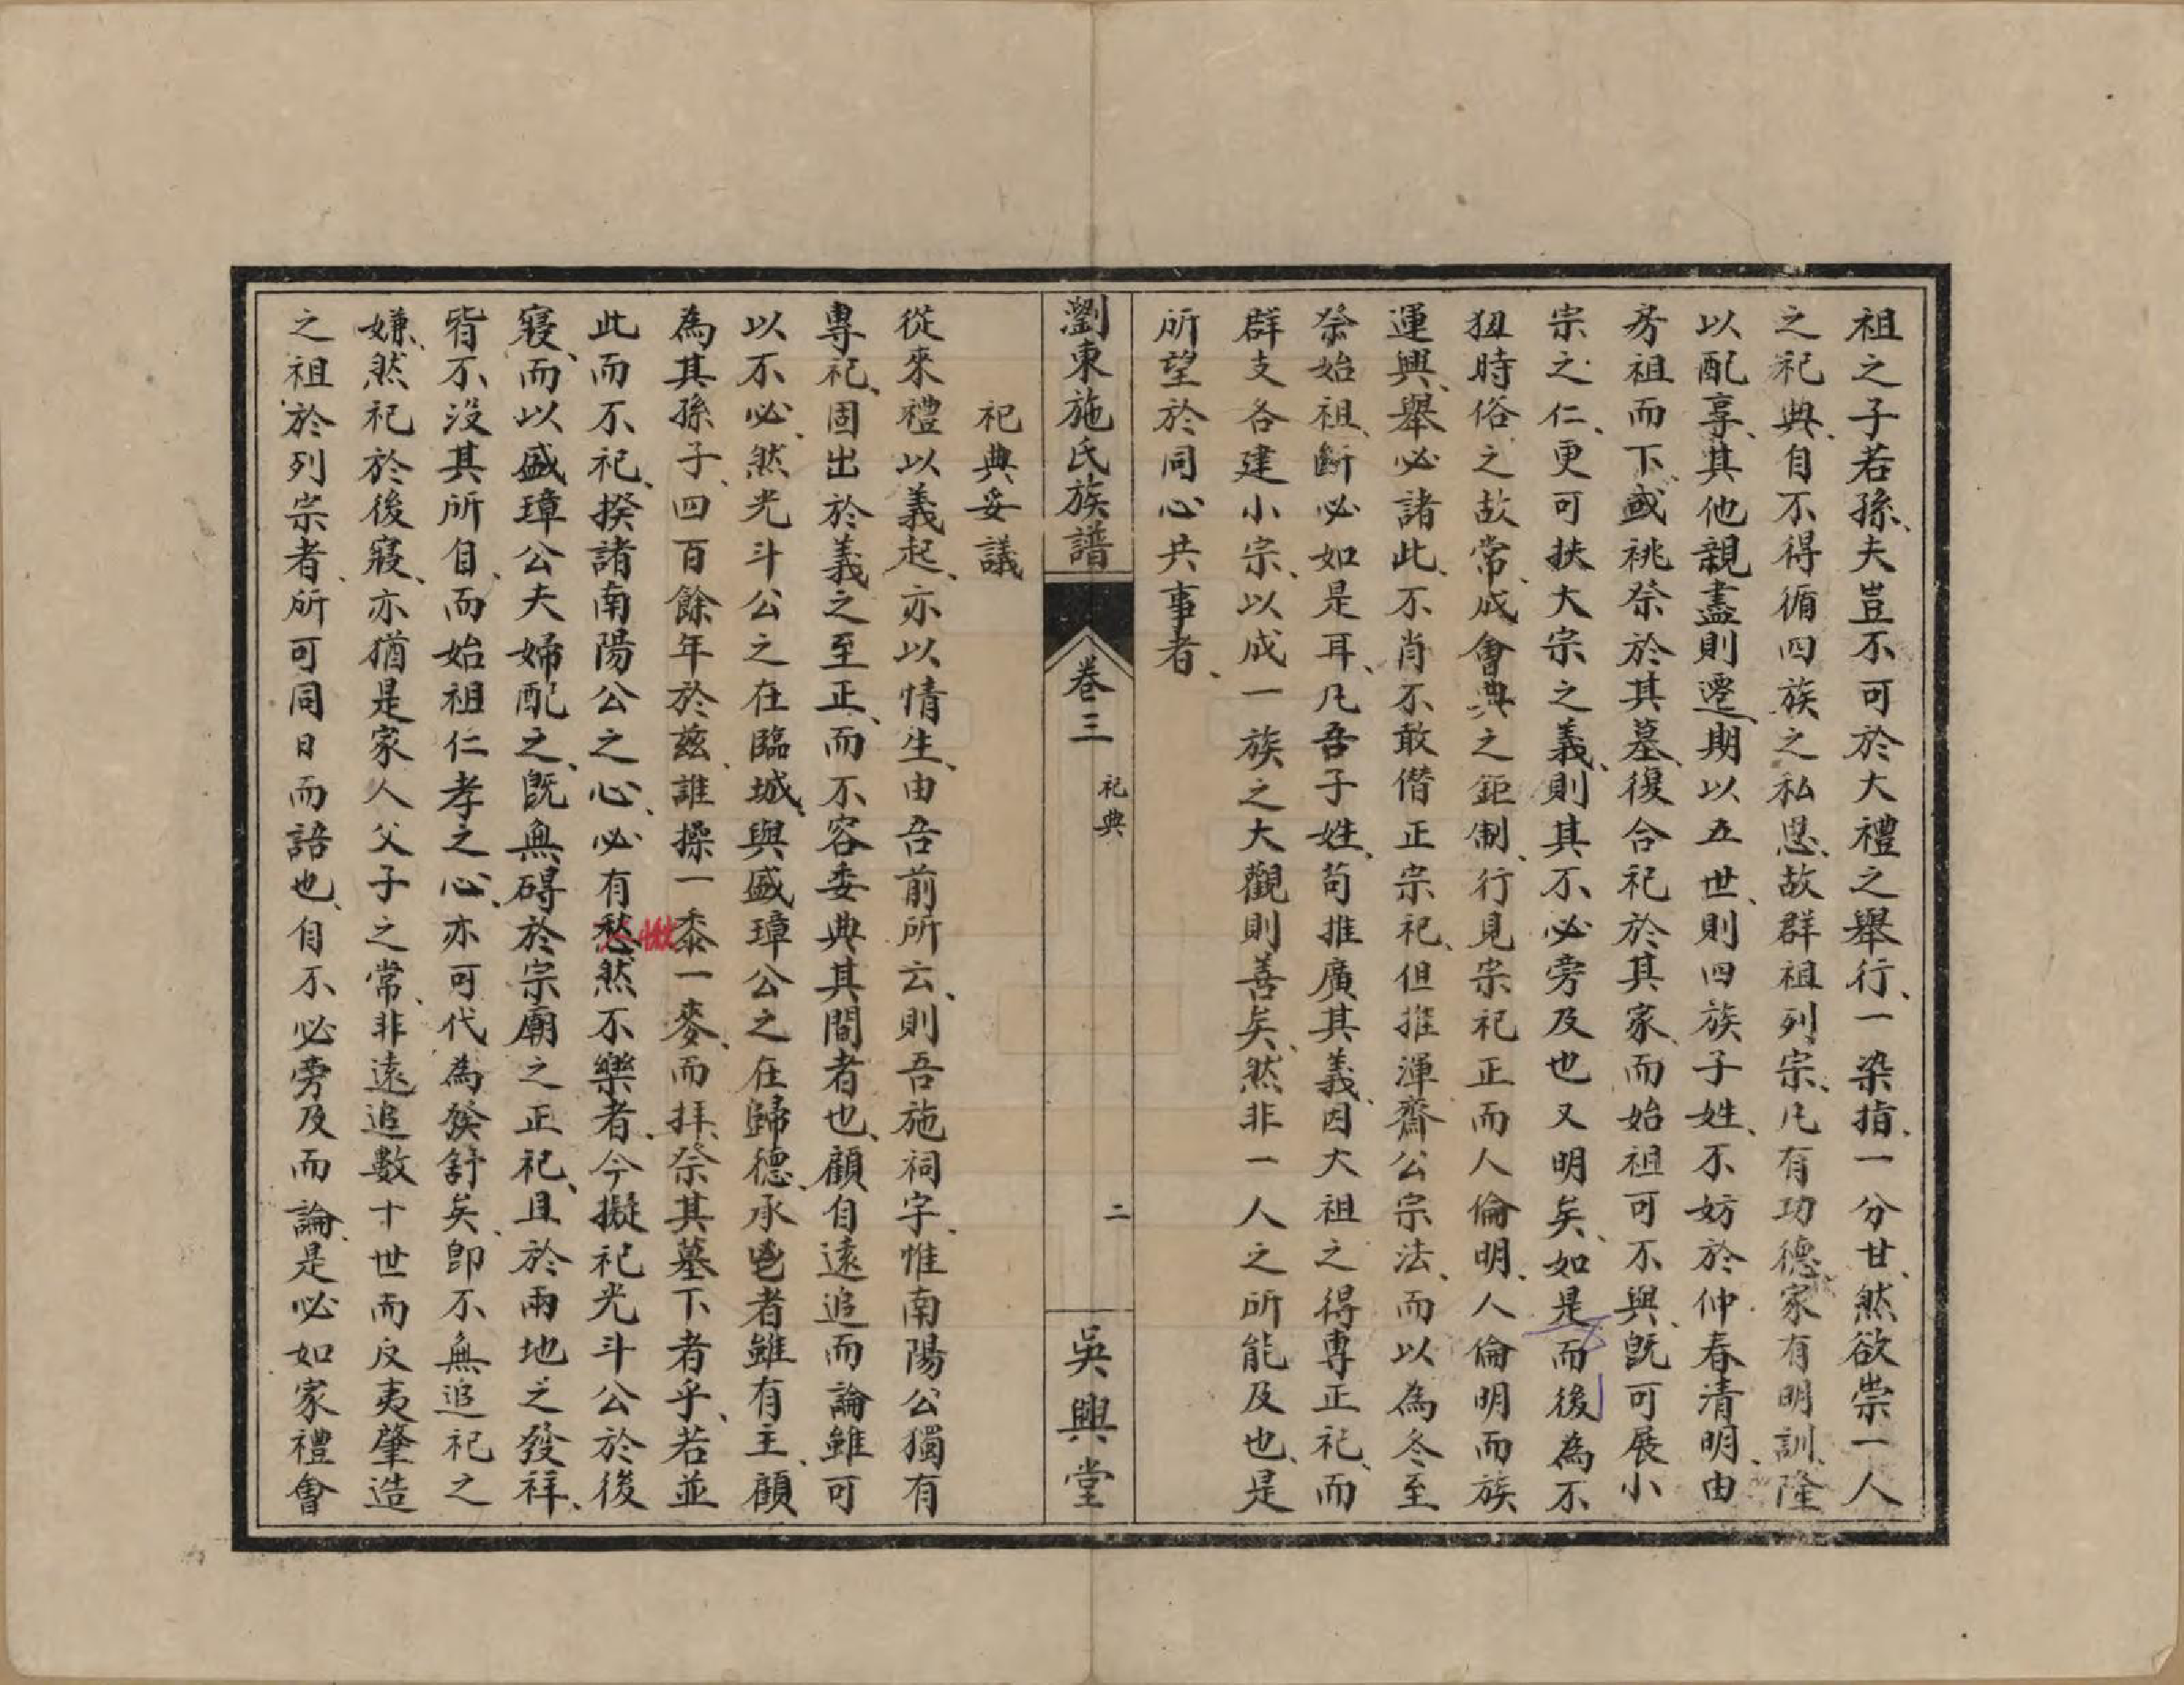 祖之子若孫、夫豈不可於大禮之舉行、一染指、一分甘、然欲崇一人
之祀典、自不得循四族之私恩、故群祖列宗、凡有功德家有明訓、隆
以配享、其他親盡則遷、期以五世、則四族子姓、不妨於仲春清明、由
房祖而下、或祧祭於其墓、復合祀於其家、而始祖可不與、既可展小
宗之仁、更可扶大宗之義、則其不必旁及也又明矣、如是而後為不
狃時俗之故常、成會典之鉅制、行見宗祀正而人倫明、人倫明而族
運興、舉必諸此、不肖不敢僭正宗祀、但推渾齋公宗法、而以為冬至
祭始祖、斷必如是耳、凡吾子姓、苟推廣其義、因大祖之得專正祀、而
群支各建小宗、以成一族之大觀則善矣、然非一人之所能及也、是
所望於同心共事者、
瀏東施氏族譜
卷三
祀典
二
吳興堂
祀典妥議
從來禮以義起、亦以情生、由吾前所云、則吾施祠字、惟南陽公獨有
專祀、固出於義之至正、而不容委典其間者也、顧自遠追而論雖可
以不必、然光斗公之在臨城、與盛璋公之在歸德、承鬯者雖有主、顧
為其孫子、四百餘年於茲、誰操一黍一麥、而拜祭其墓下者乎、若並
此而不祀、揆諸南陽公之心、必有愁然不樂者、今擬祀光斗公於後
愀
寢、而以盛璋公夫婦配之、既無碍於宗廟之正祀、且於兩地之發祥、
皆不沒其所自、而始祖仁孝之心、亦可代為發舒矣、即不無追祀之
嫌、然祀於後寢、亦猶是家人父子之常、非遠追數十世而反夷肇造
之祖於列宗者、所可同日而語也、自不必旁及而論、是必如家禮會